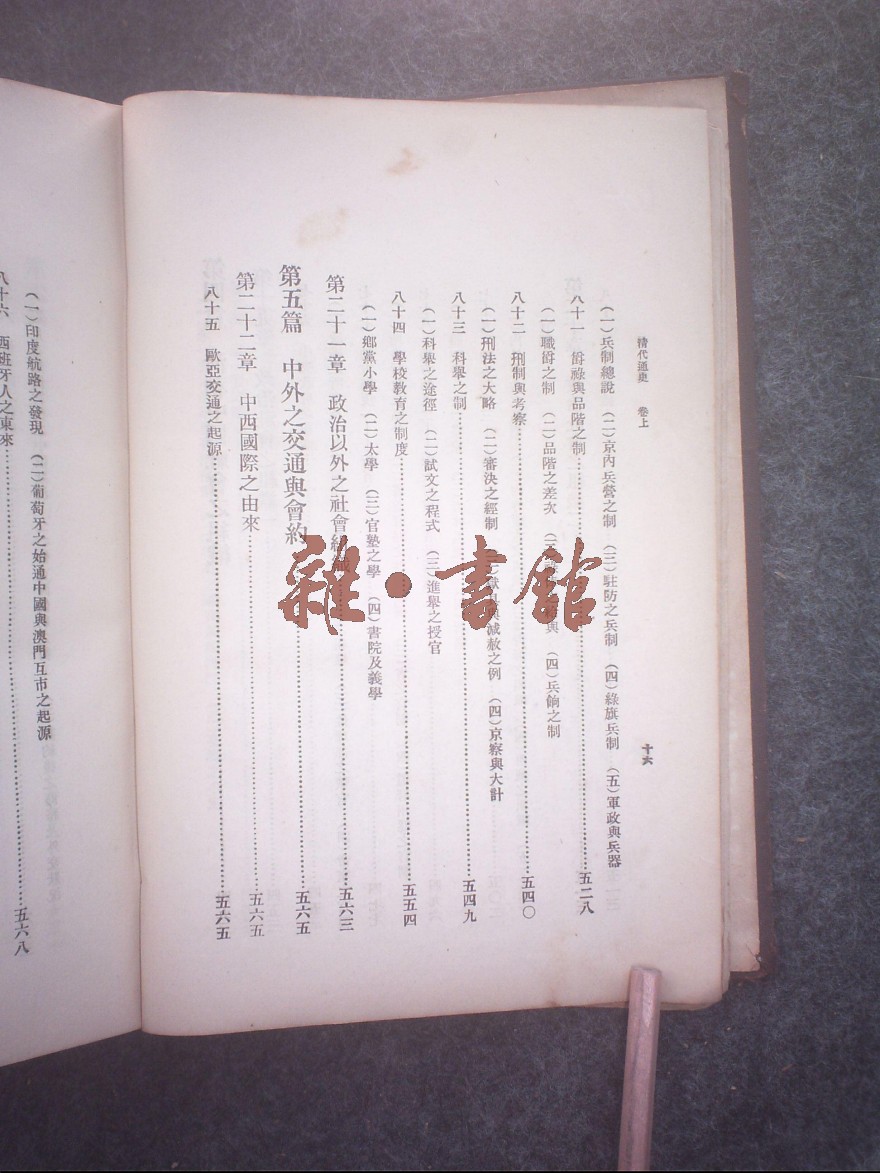 清代通史 卷上 十六
(一)兵制總說 (二)京內兵營之制 (三)駐防之兵制 (四)綠旗兵制 (五)軍政與兵器
八十一 爵祿與品階之制……五二八
(一)職爵之制 (二)品階之差次 (四)兵餉之制
八十二 刑制與考察……五四〇
(一)刑法之大略 (二)審決之經制 減赦之例 (四)京察與大計
八十三 科舉之制……五四九
(一)科舉之途徑 (二)試文之程式 (三)進舉之授官
八十四 學校教育之制度……五五四
(一)鄉黨小學 (二)太學 (三)官塾之學 (四)書院及義學
第二十一章 政治以外之社會……五六三
第五篇 中外之交通與會約……五六五
第二十二章 中西國際之由來……五六五
八十五 歐亞交通之起源……五六五
(一)印度航路之發現 (二)葡萄牙之始通中國與澳門互市之起源
八十六 西班牙人之東來……五六八
雜·書館